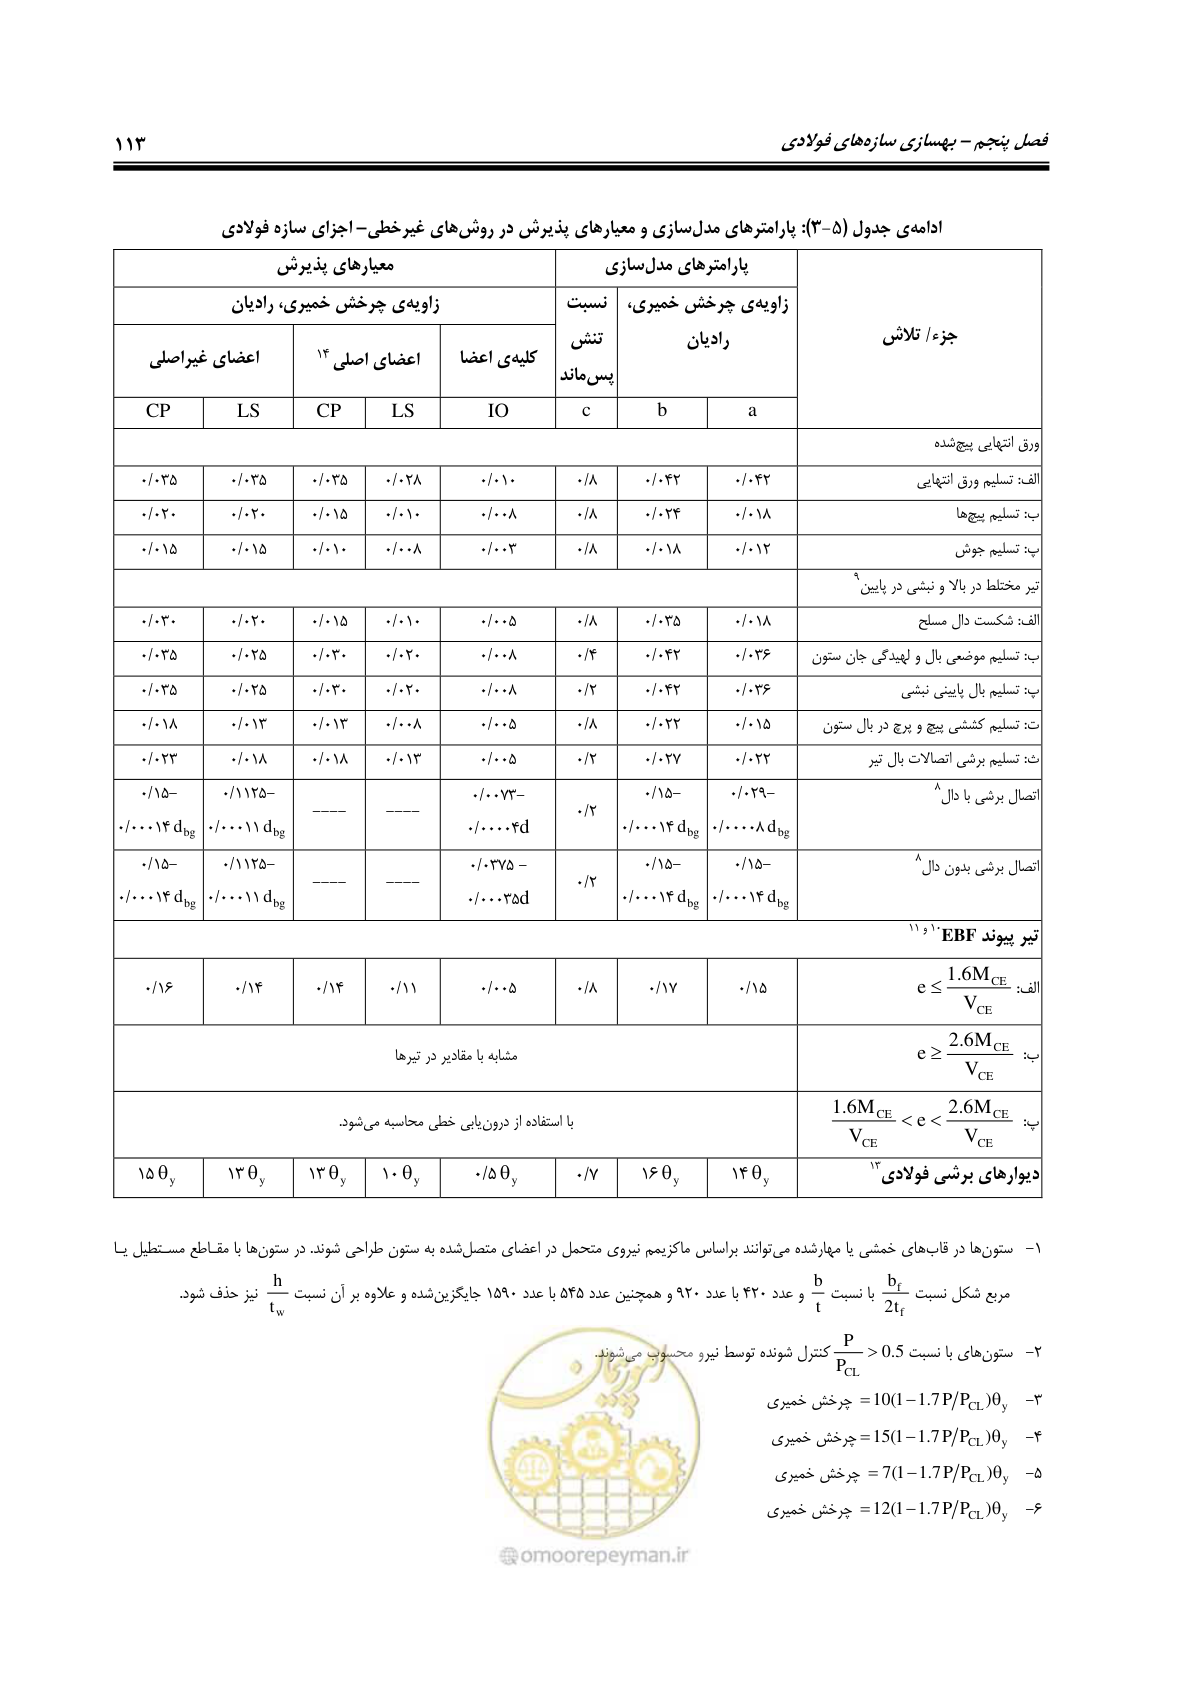 فصل پنجم – بهسازی سازه‌های فولادی ۱۱۳
ادامه‌ی جدول (۵-۳): پارامترهای مدل‌سازی و معیارهای پذیرش در روش‌های غیرخطی- اجزای سازه فولادی
جزء/ تلاش پارامترهای مدل‌سازی معیارهای پذیرش
زاویه‌ی چرخش خمیری، رادیان نسبت تنش پس‌ماند زاویه‌ی چرخش خمیری، رادیان
کلیه‌ی اعضا اعضای اصلی ۱۴ اعضای غیراصلی
a b c IO LS CP LS CP
ورق انتهایی پیچ‌شده
الف: تسلیم ورق انتهایی ۰/۰۴۲ ۰/۰۴۲ ۰/۸ ۰/۰۱۰ ۰/۰۲۸ ۰/۰۳۵ ۰/۰۳۵ ۰/۰۳۵
ب: تسلیم پیچ‌ها ۰/۰۱۸ ۰/۰۲۴ ۰/۸ ۰/۰۰۸ ۰/۰۱۰ ۰/۰۱۵ ۰/۰۲۰ ۰/۰۲۰
پ: تسلیم جوش ۰/۰۱۲ ۰/۰۱۸ ۰/۸ ۰/۰۰۳ ۰/۰۰۸ ۰/۰۱۰ ۰/۰۱۵ ۰/۰۱۵
تیر مختلط در بالا و نبشی در پایین۹
الف: شکست دال مسلح ۰/۰۱۸ ۰/۰۳۵ ۰/۸ ۰/۰۰۵ ۰/۰۱۰ ۰/۰۱۵ ۰/۰۲۰ ۰/۰۳۰
ب: تسلیم موضعی بال و لهیدگی جان ستون ۰/۰۳۶ ۰/۰۴۲ ۰/۴ ۰/۰۰۸ ۰/۰۲۰ ۰/۰۳۰ ۰/۰۲۵ ۰/۰۳۵
پ: تسلیم بال پایینی نبشی ۰/۰۳۶ ۰/۰۴۲ ۰/۲ ۰/۰۰۸ ۰/۰۲۰ ۰/۰۳۰ ۰/۰۲۵ ۰/۰۳۵
ت: تسلیم کششی پیچ و پرچ در بال ستون ۰/۰۱۵ ۰/۰۲۲ ۰/۸ ۰/۰۰۵ ۰/۰۰۸ ۰/۰۱۳ ۰/۰۱۳ ۰/۰۱۸
ث: تسلیم برشی اتصالات بال تیر ۰/۰۲۲ ۰/۰۲۷ ۰/۲ ۰/۰۰۵ ۰/۰۱۳ ۰/۰۱۸ ۰/۰۱۸ ۰/۰۲۳
اتصال برشی با دال۸ ۰/۰۲۹– ۰/۰۰۰۰۸ dbg ۰/۱۵– ۰/۰۰۰۱۴ dbg ۰/۲ ۰/۰۰۷۳– ۰/۰۰۰۰۴d ---- ---- ۰/۱۱۲۵– ۰/۰۰۰۱۱ dbg ۰/۱۵– ۰/۰۰۰۱۴ dbg
اتصال برشی بدون دال۸ ۰/۱۵– ۰/۰۰۰۱۴ dbg ۰/۱۵– ۰/۰۰۰۱۴ dbg ۰/۲ ۰/۰۳۷۵ – ۰/۰۰۰۳۵d ---- ---- ۰/۱۱۲۵– ۰/۰۰۰۱۱ dbg ۰/۱۵– ۰/۰۰۰۱۴ dbg
تیر پیوند EBF۱۰ و ۱۱
الف: e ≤ 1.6MCE / VCE ۰/۱۵ ۰/۱۷ ۰/۸ ۰/۰۰۵ ۰/۱۱ ۰/۱۴ ۰/۱۴ ۰/۱۶
ب: e ≥ 2.6MCE / VCE مشابه با مقادیر در تیرها
پ: 1.6MCE / VCE < e < 2.6MCE / VCE با استفاده از درون‌یابی خطی محاسبه می‌شود.
دیوارهای برشی فولادی۱۳ ۱۴ θy ۱۶ θy ۰/۷ ۰/۵ θy ۱۰ θy ۱۳ θy ۱۳ θy ۱۵ θy
۱- ستون‌ها در قاب‌های خمشی یا مهارشده می‌توانند براساس ماکزیمم نیروی متحمل در اعضای متصل‌شده به ستون طراحی شوند. در ستون‌ها با مقاطع مستطیل یا
مربع شکل نسبت bf / 2tf با نسبت b / t و عدد ۴۲۰ با عدد ۹۲۰ و همچنین عدد ۵۴۵ با عدد ۱۵۹۰ جایگزین‌شده و علاوه بر آن نسبت h / tw نیز حذف شود.
۲- ستون‌های با نسبت P / PCL > 0.5 کنترل شونده توسط نیرو محسوب می‌شوند.
۳- چرخش خمیری = 10(1 − 1.7 P/PCL)θy
۴- چرخش خمیری = 15(1 − 1.7 P/PCL)θy
۵- چرخش خمیری = 7(1 − 1.7 P/PCL)θy
۶- چرخش خمیری = 12(1 − 1.7 P/PCL)θy
امورپیمان
@omoorepeyman.ir